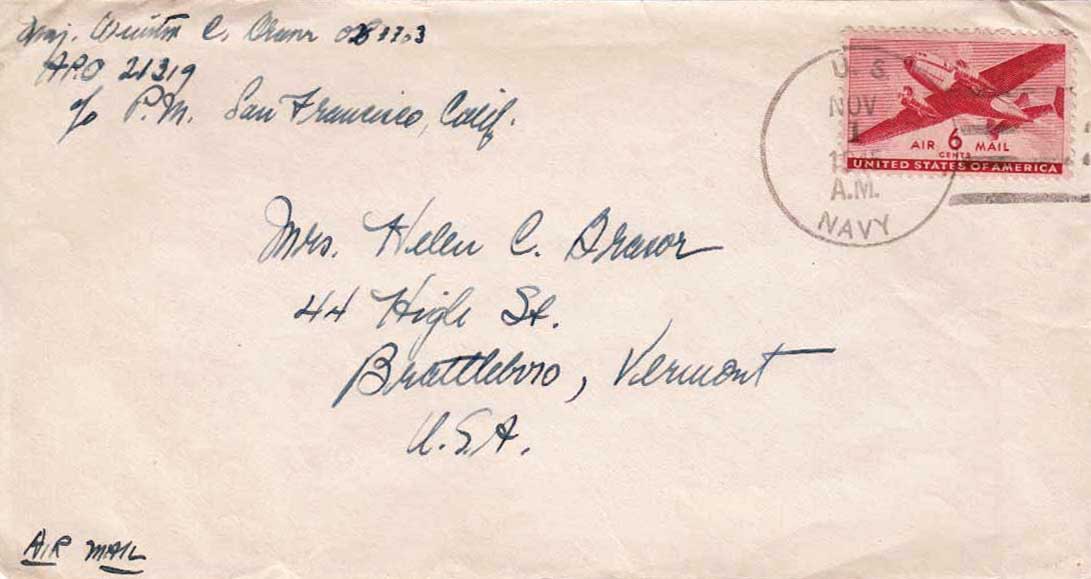 Maj. C. 
APO 21219
c/o P.M. San Francisco, Calif.
U. S.
NOV
1
A.M.
NAVY
AIR 6 MAIL
CENTS
UNITED STATES OF AMERICA
Mrs. Helen C.
44 High St.
Brattleboro, Vermont
U.S.A.
AIR MAIL